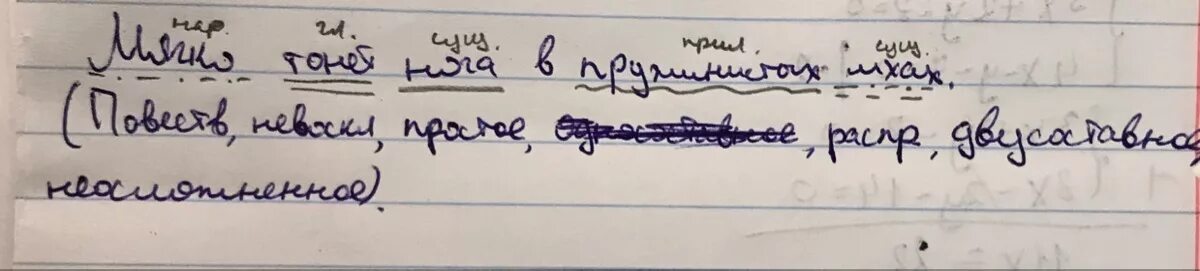 нар. гл. сущ. прил. сущ.
Мягко тонет нога в пружинистых мхах.
(Повеств, невоскл, простое, односоставное, распр, двусоставное,
неосложненное).